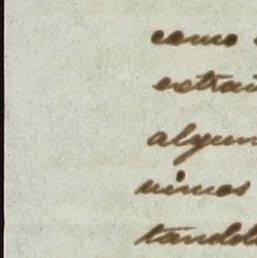 como
extrai
algun
vimos
tandol